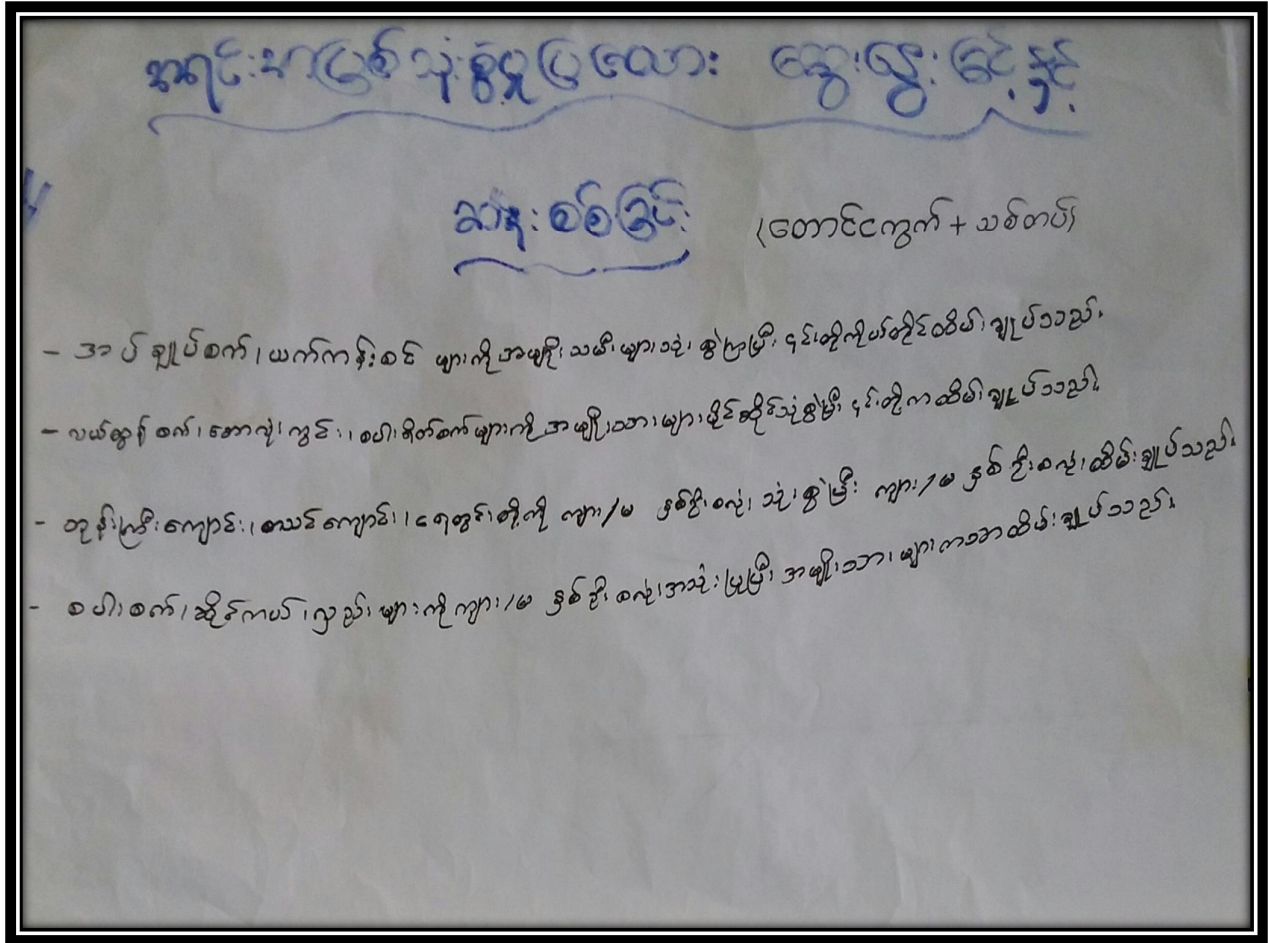 အရင်းအမြစ်သုံးစွဲမှုပြလေား ဆွေးနွေးခြင်းနှင့်
ဆန်းစစ်ခြင်း (တောင်ငကွက် + သစ်တပ်)
- အပ်ချုပ်စက်၊ ယက်ကန်းစင် များကို အမျိုးသမီးများသုံးစွဲကြပြီး ၎င်းတို့ကိုယ်တိုင်ထိမ်းချုပ်သည်။
- လယ်ထွန်စက်၊ ဘောလုံးကွင်း၊ စပါးရိတ်စက်များကို အမျိုးသားများပိုင်ဆိုင်သုံးစွဲပြီး ၎င်းတို့ကထိမ်းချုပ်သည်။
- ဘုန်းကြီးကျောင်း၊ စာသင်ကျောင်း၊ ရေတွင်းတို့ကို ကျား/မ နှစ်ဦးစလုံး သုံးစွဲပြီး ကျား/မ နှစ်ဦးစလုံးထိမ်းချုပ်သည်။
- စပါးစက်၊ ဆိုင်ကယ်၊ လှည်းများကို ကျား/မ နှစ်ဦးစလုံးအသုံးပြုပြီး အမျိုးသားများကသာထိမ်းချုပ်သည်။